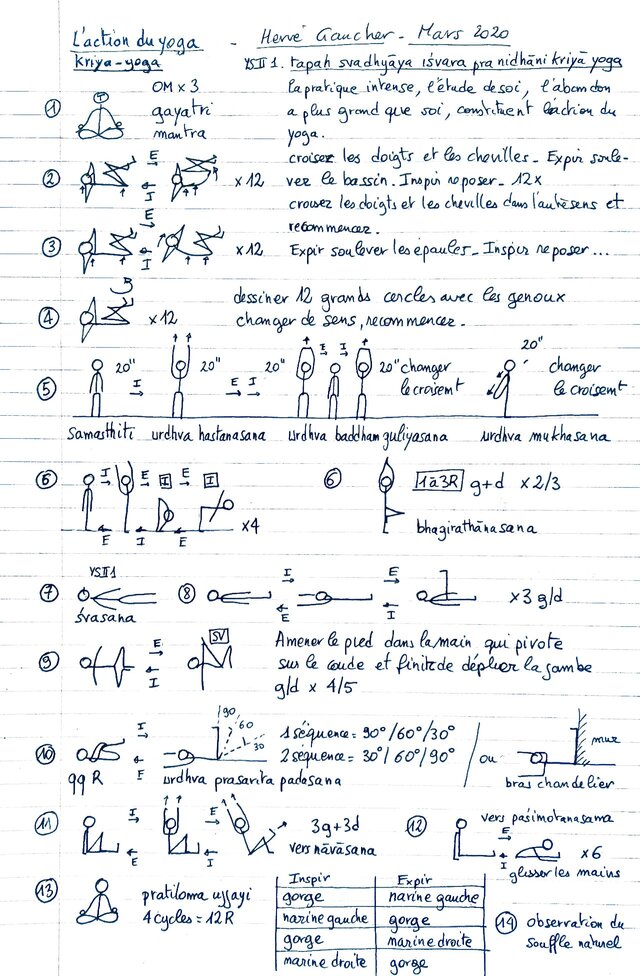 L'action du yoga - Hervé Gaucher - Mars 2020
Kriya-yoga
YSII 1. tapah svadhyāya iśvara pranidhāni kriyā yoga
la pratique intense, l'étude de soi, l'abandon
a plus grand que soi, constituent l'action du
yoga.
1 OM x 3
gayatri
mantra
croisez les doigts et les chevilles - Expir soule-
ver le bassin. Inspir reposer - 12x
croisez les doigts et les chevilles dans l'autre sens et
recommencez.
2 E I x 12
3 E I x 12 Expir soulever les épaules - Inspir reposer...
4 x 12 dessiner 12 grands cercles avec les genoux
changer de sens, recommencer.
5 20" I 20" E I 20" I I 20" changer
le croisemt
20" changer
le croisemt
samasthiti urdhva hastanasana urdhva baddham guliyasana urdhva mukhasana
6 I E I I
E I E x4
6 1à3R g+d x 2/3
bhagirathānasana
7 YSII1
śvasana
8 I E E I x3 g/d
9 E I SV
Amener le pied dans la main qui pivote
sur le coude et finir de déplier la jambe
g/d x 4/5
10 I E 90 60 30
1 séquence = 90°/60°/30°
2 séquence = 30°/60°/90°
/ ou mur
qq R urdhva prasarita padasana bras chandelier
11 I E E I 3g+3d
vers nāvāsana
12 vers paśimotanasama
E I x6
glisser les mains
13 pratiloma ujjayi
4 cycles = 12R
Inspir Expir
gorge narine gauche
narine gauche gorge
gorge marine droite
marine droite gorge
14 observation du
souffle naturel